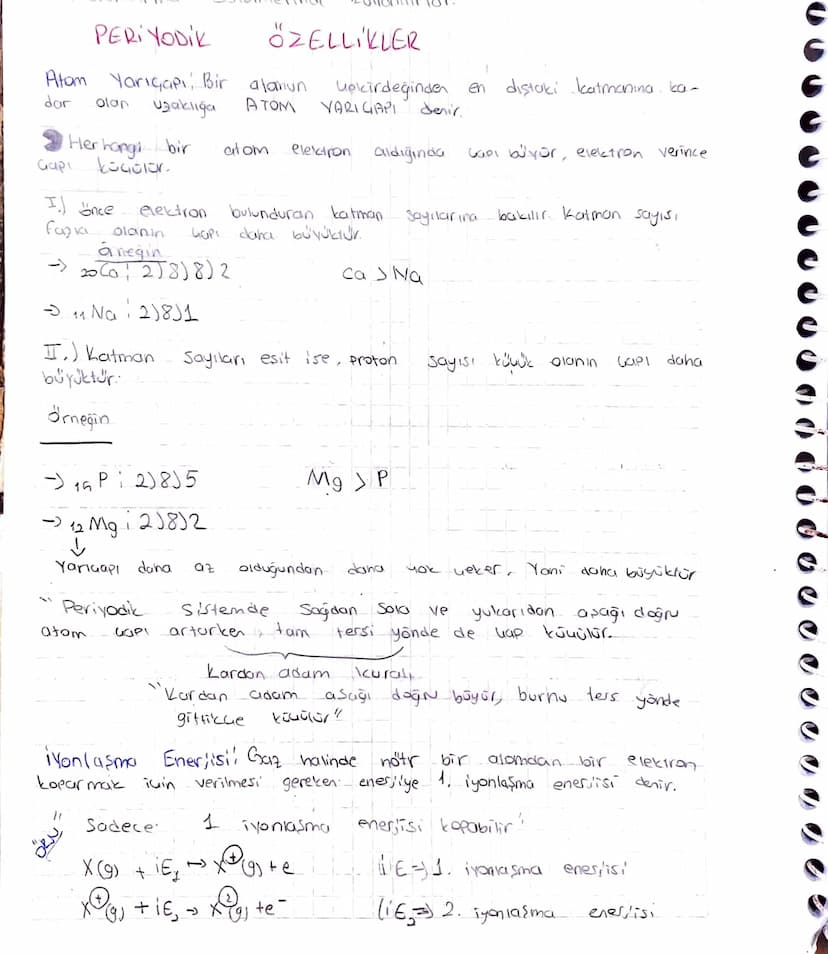 PERİYODİK ÖZELLİKLER
Atom Yarıçapı: Bir atomun çekirdeğinden en dıştaki katmanına ka-
dar olan uzaklığa ATOM YARIÇAPI denir.
Herhangi bir atom elektron aldığında çapı büyür, elektron verince
çapı küçülür.
I.) Önce elektron bulunduran katman sayılarına bakılır. Katman sayısı
fazla olanın çapı daha büyüktür.
örneğin
→ 20Ca: 2)8)8)2 Ca > Na
→ 11Na: 2)8)1
II.) Katman sayıları eşit ise, proton sayısı küçük olanın çapı daha
büyüktür.
Örneğin
→ 15P: 2)8)5 Mg > P
→ 12Mg: 2)8)2
↓
Yarıçapı daha az olduğundan daha çok çeker. Yani daha büyüktür
"Periyodik sistemde sağdan sola ve yukarıdan aşağı doğru
atom çapı artarken, tam tersi yönde de çap küçülür.
Kardan adam kuralı
"Kardan adam aşağı doğru büyür, burnu ters yönde
gittikçe küçülür"
İyonlaşma Enerjisi: Gaz halinde nötr bir atomdan bir elektron
koparmak için verilmesi gereken enerjiye 1. iyonlaşma enerjisi denir.
" Sadece 1 iyonlaşma enerjisi kopabilir"
X(g) + iE1 → X+(g) + e iE ⇒ 1. iyonlaşma enerjisi
X+(g) + iE2 → X2(g) + e- (iE2 ⇒) 2. iyonlaşma enerjisi